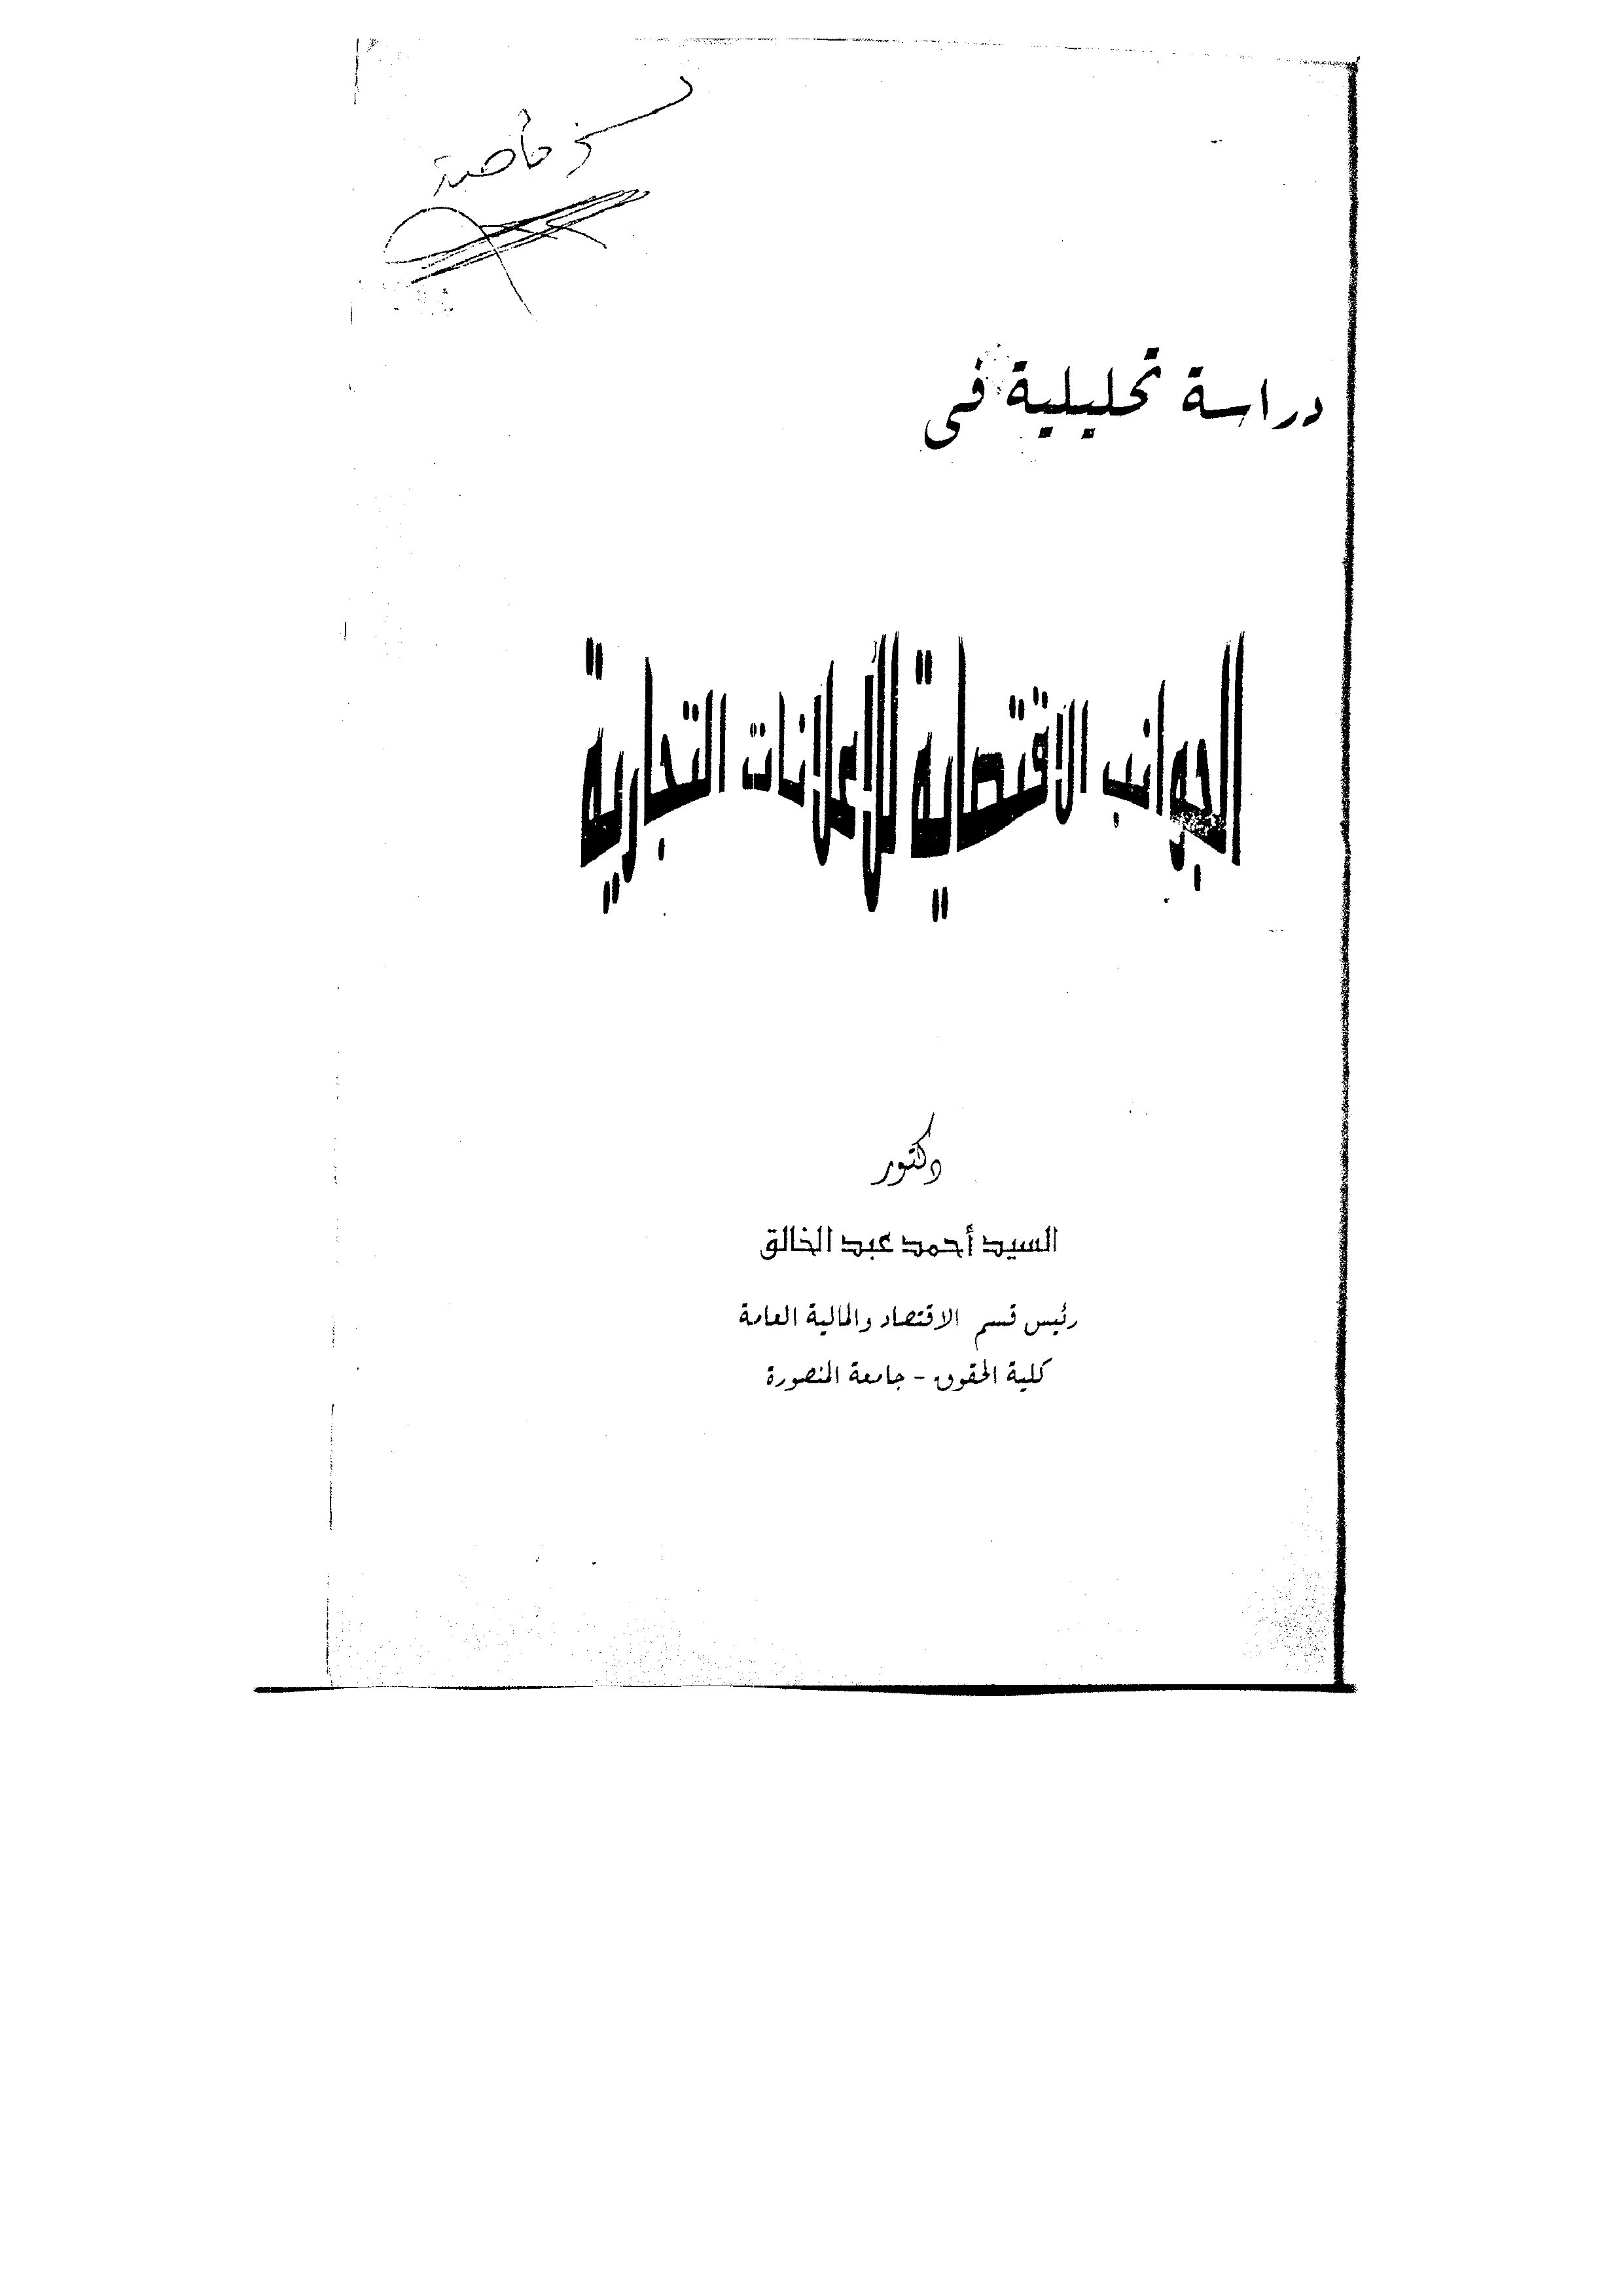 خاصة
دراسة تحليلية فى
الجوانب الاقتصاية للأعلانات التجارية
دكتور
السيد أحمد عبد الخالق
رئيس قسم الاقتصاد والمالية العامة
كلية الحقوق - جامعة المنصورة